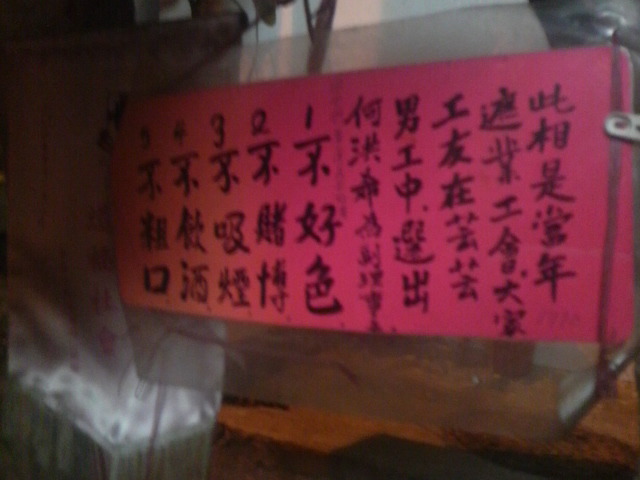 此相是當年
遮業工會大家
工友在芸芸
男工中選出
何洪希為副理事長
1不好色
2不賭博
3不吸煙
4不飲酒
5不粗口